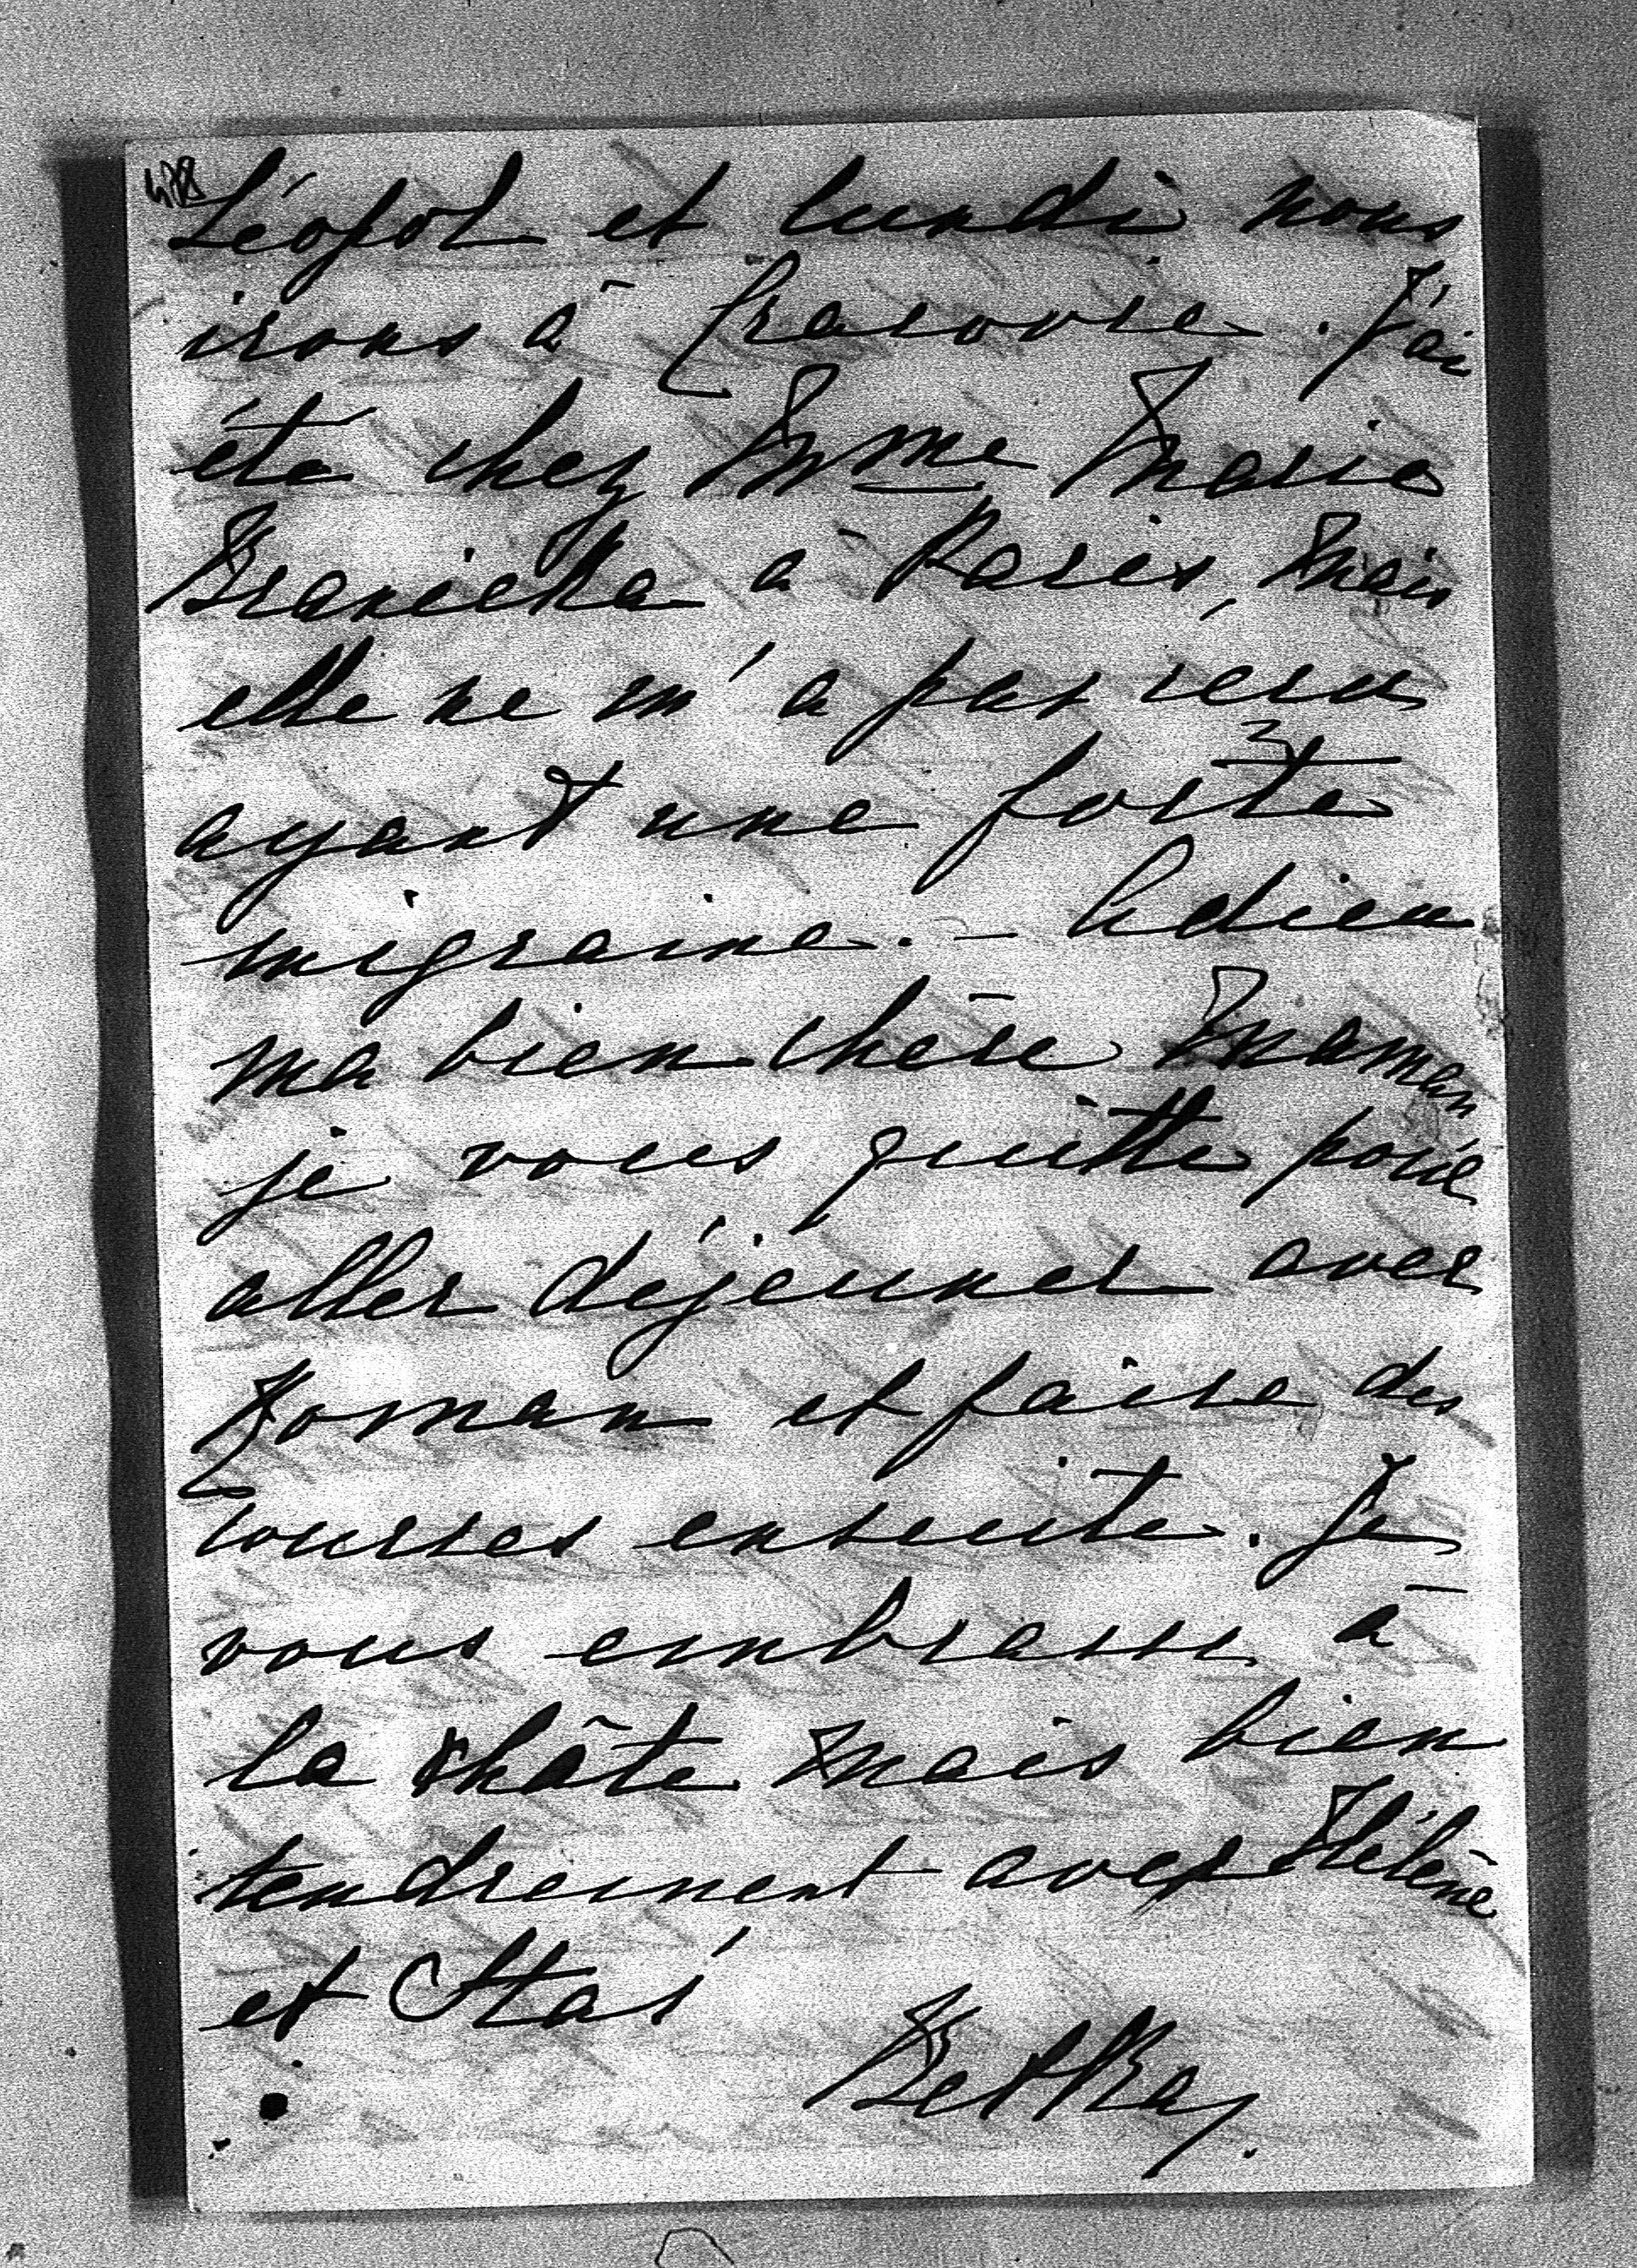 Léopol et lundi nous
irons à Cracovie. J'ai
été chez Mme Marie
Branicka à Paris, mais
elle ne m'a pas reçu
ayant une forte
migraine. — Adieu
ma bien chère Maman
je vous quitte pour
aller déjeuner avec
Roman et faire des
courses ensuite. Je
vous embrasse à
la hâte mais bien
tendrement avec Hélène
et Staś